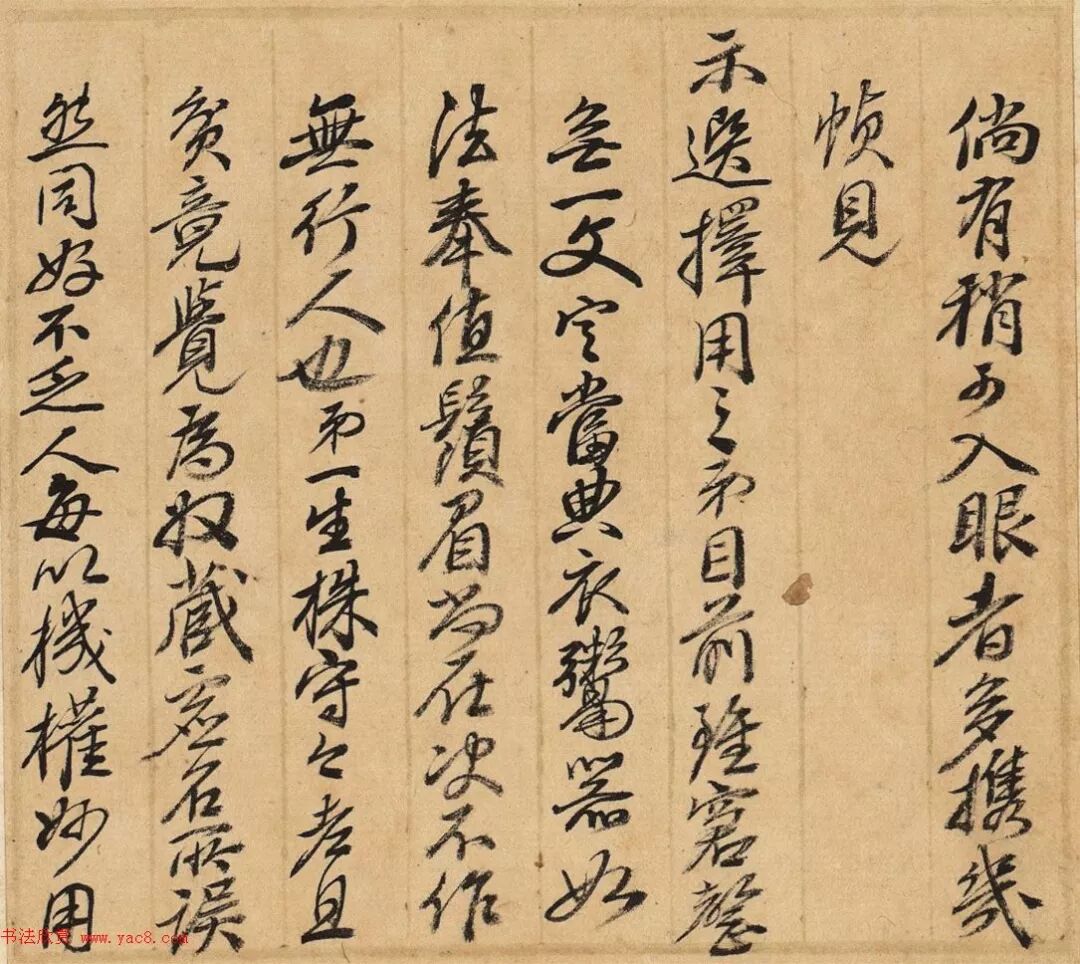 倘有稍可入眼者多攜幾
幀見
示選擇用之弟目前雖窘罄
無一文定當典衣鬻器如
法奉值鬚眉尚在决不作
無行人也弟一生株守今老且
貧竟覺為收藏虛名所誤
然同好不乏人每以機權妙用
书法欣赏 www.yac8.com